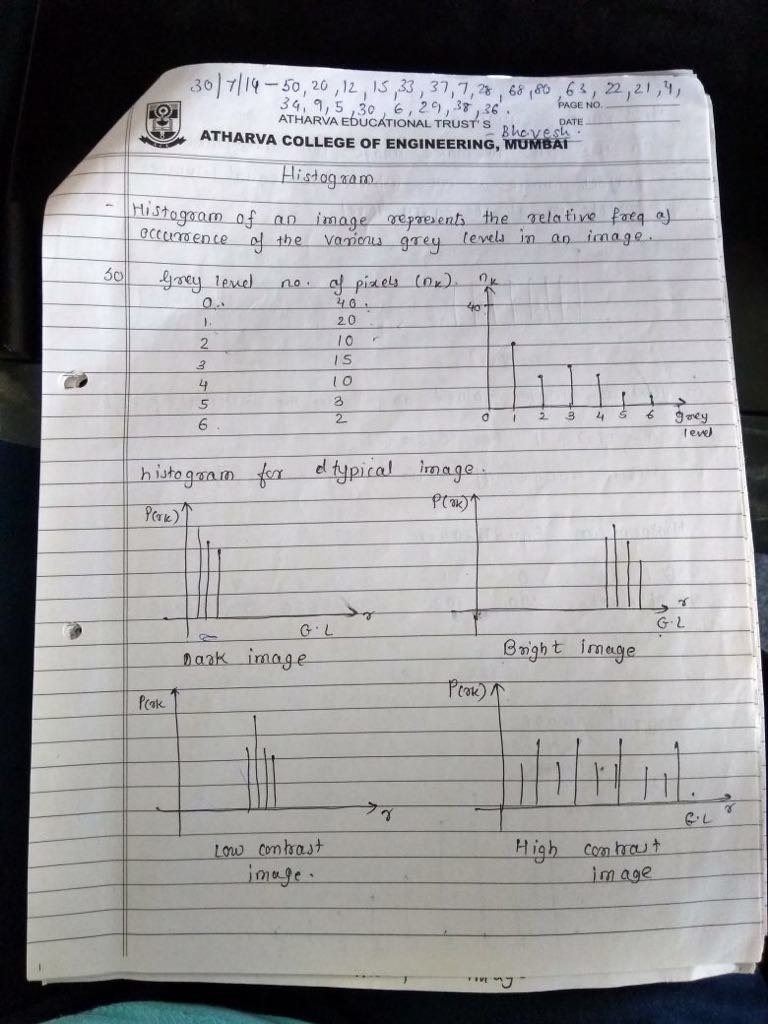 30/7/14 - 50, 20, 12, 15, 33, 37, 7, 28, 68, 80, 63, 22, 21, 4,
34, 9, 5, 30, 6, 29, 38, 36. PAGE NO.
ATHARVA EDUCATIONAL TRUST'S DATE
- Bhavesh.
ATHARVA COLLEGE OF ENGINEERING, MUMBAI
Histogram
- Histogram of an image represents the relative freq of
occurrence of the various grey levels in an image.
50 Grey level no. of pixels (nk). nk
0 40 40
1. 20
2 10
3 15
4 10
5 3
6. 2
0 1 2 3 4 5 6 grey
level
histogram for typical image.
P(rk) P(rk)
r r
G.L G.L
Dark image Bright image
P(rk P(rk)
r r
G.L
Low contrast High contrast
image. image